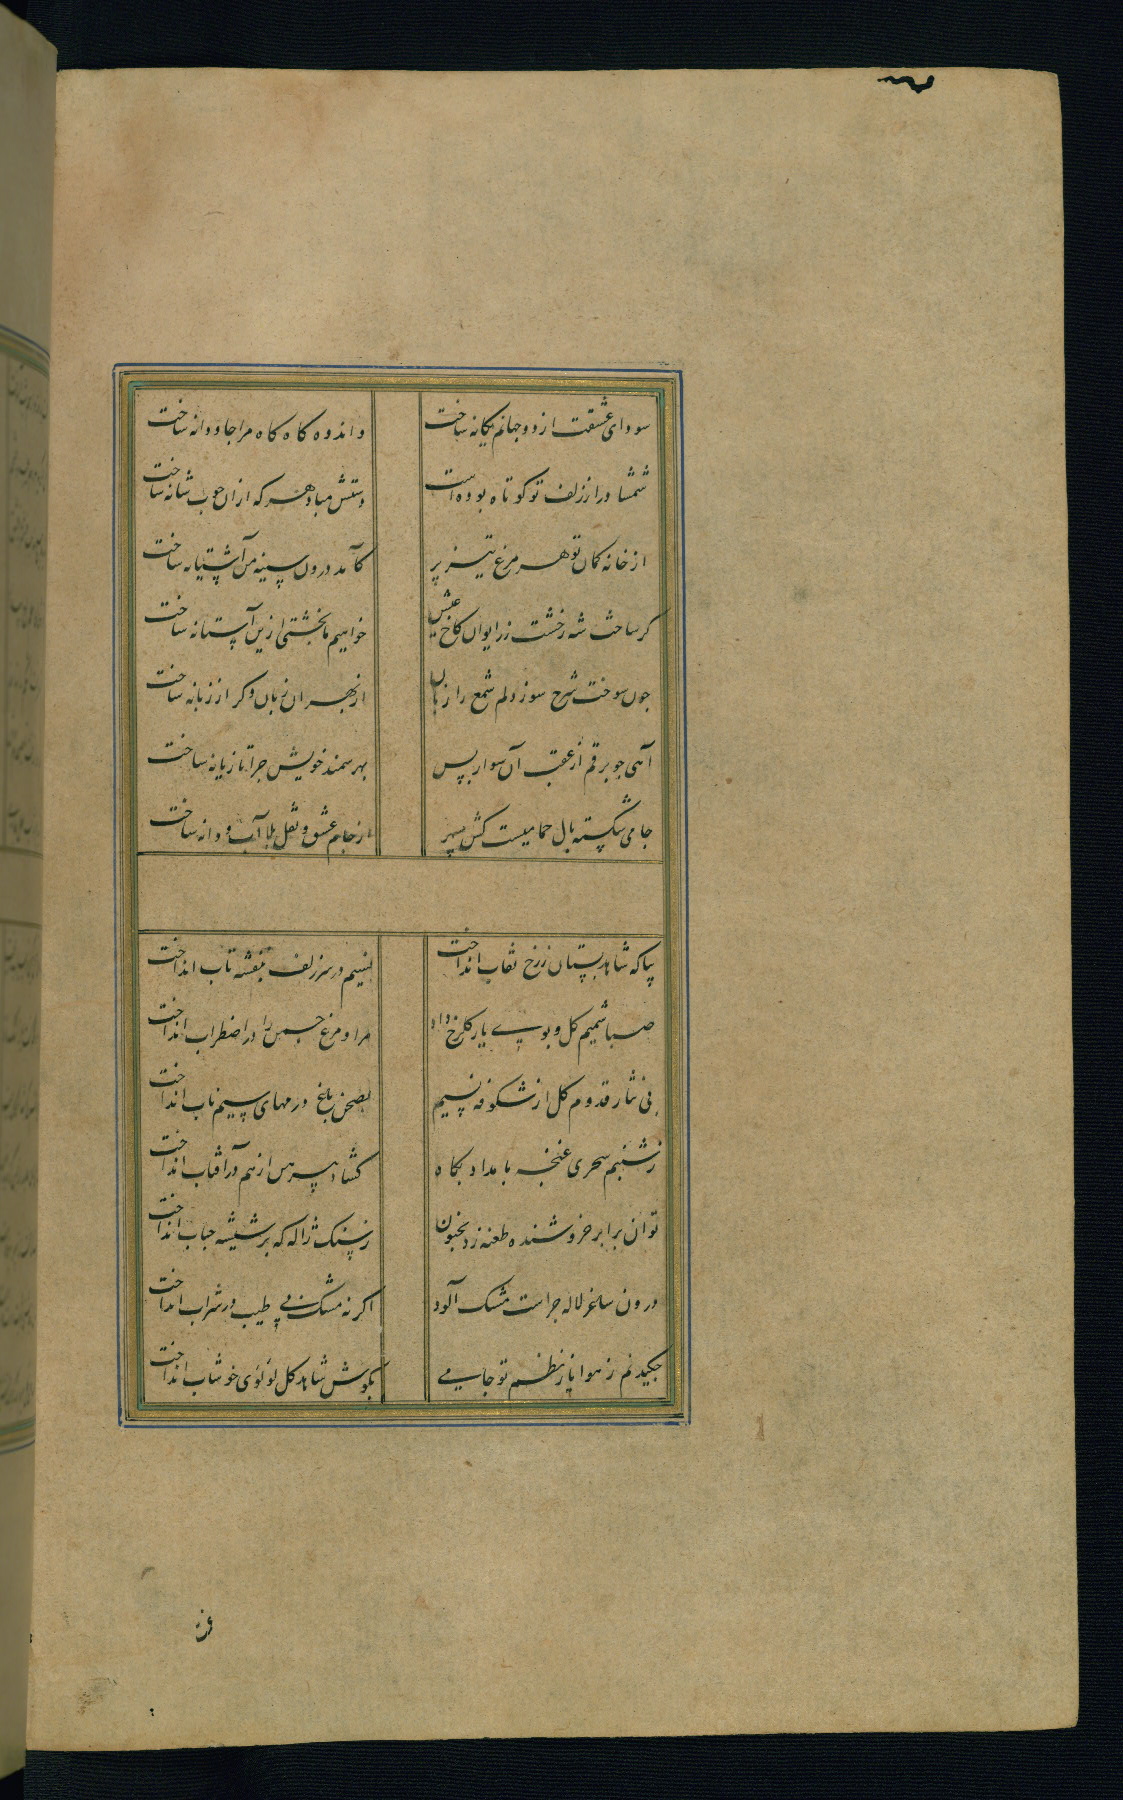 سودای عشقت از دو جهانم یکانه ساخت
و اندوه کاه کاه مرا جاودانه ساخت
شمشاد را ز زلف تو کوتاه بوده است
دستش مباد هر که ازان چوب شانه ساخت
از خانه کمان تو هر مرغ تیز پر
کآمد درون سینه من آشیانه ساخت
کر ساخت شه ز خشت زر ایوان کاخ عیش
خواهیم ما بخشتی ازین آستانه ساخت
چون سوخت شرح سوز دلم شمع را زبان
از بهر آن زبان دکر از زبانه ساخت
آهی چو برقم از عقب آن سوار بس
بهر سمند خویش چرا تازیانه ساخت
جامی شکسته بال حمامیست کش سپهر
از جام عشق و نقل بلا آب و دانه ساخت
بیا که شاهد بستان ز رخ نقاب انداخت
نسیم در سر زلف بنفشه تاب انداخت
صبا شمیم کل و بوی یار کلرخ داد
مرا و مرغ چمن را در اضطراب انداخت
پی نثار قدوم کل از شکوفه نسیم
بصحن باغ درمهای سیم ناب انداخت
ز شبنم سحری غنچه بامداد بکاه
کشاد پیرهن از هم در آفتاب انداخت
توان برابر خروشنده طعنه زد بجنون
ز سنک ژاله که بر شیشه حباب انداخت
درون ساغر لاله چراست مشک آلود
اکر نه مشک پی طیب در شراب انداخت
چکید نم ز هوا یا ز نظم تو جامی
بکوش شاهد کل لؤلؤی خوشاب انداخت